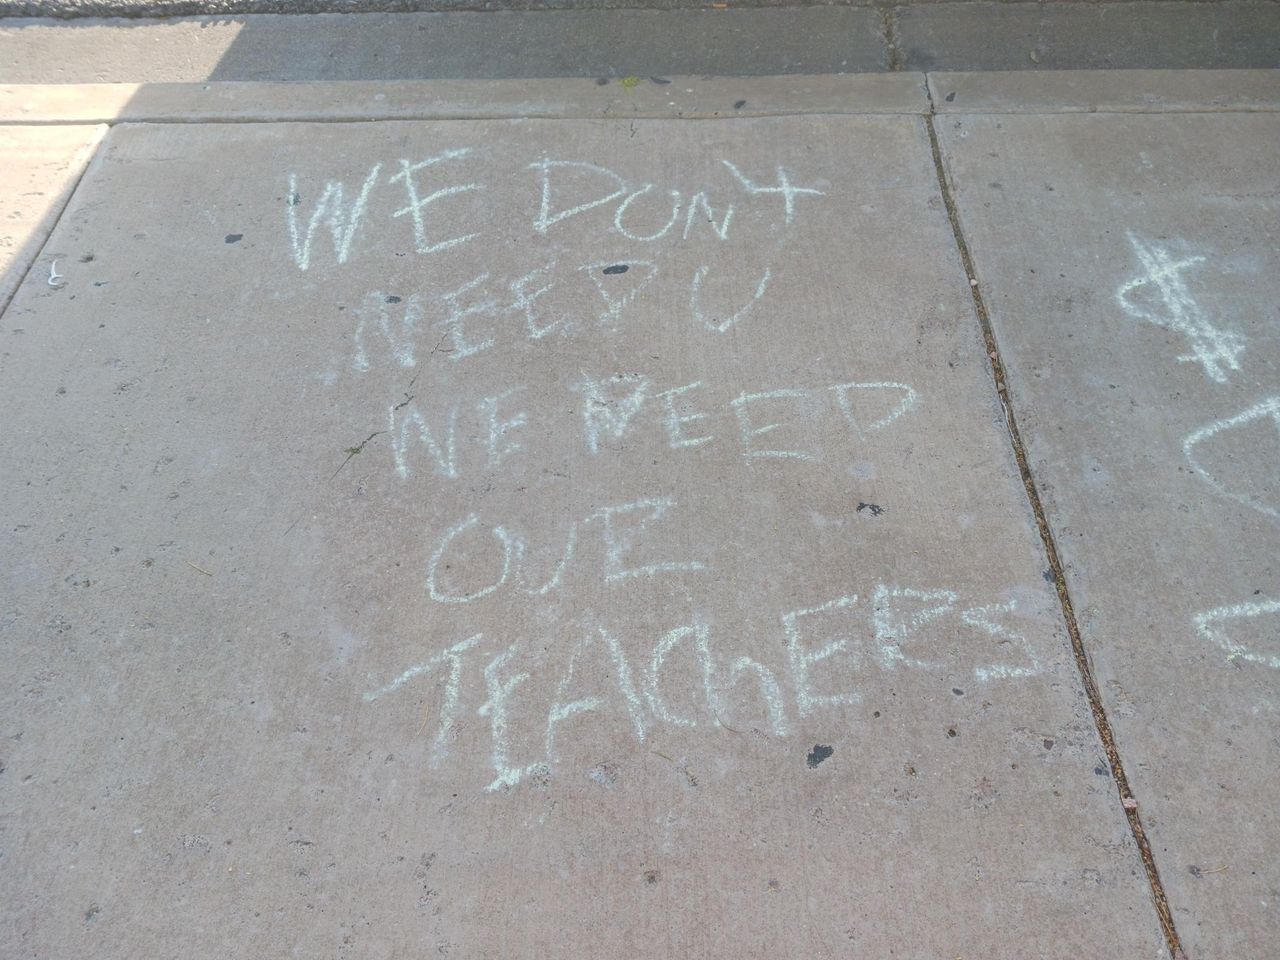 WE DON't
NEED U
WE NEED
OUE
TEACHERS
$